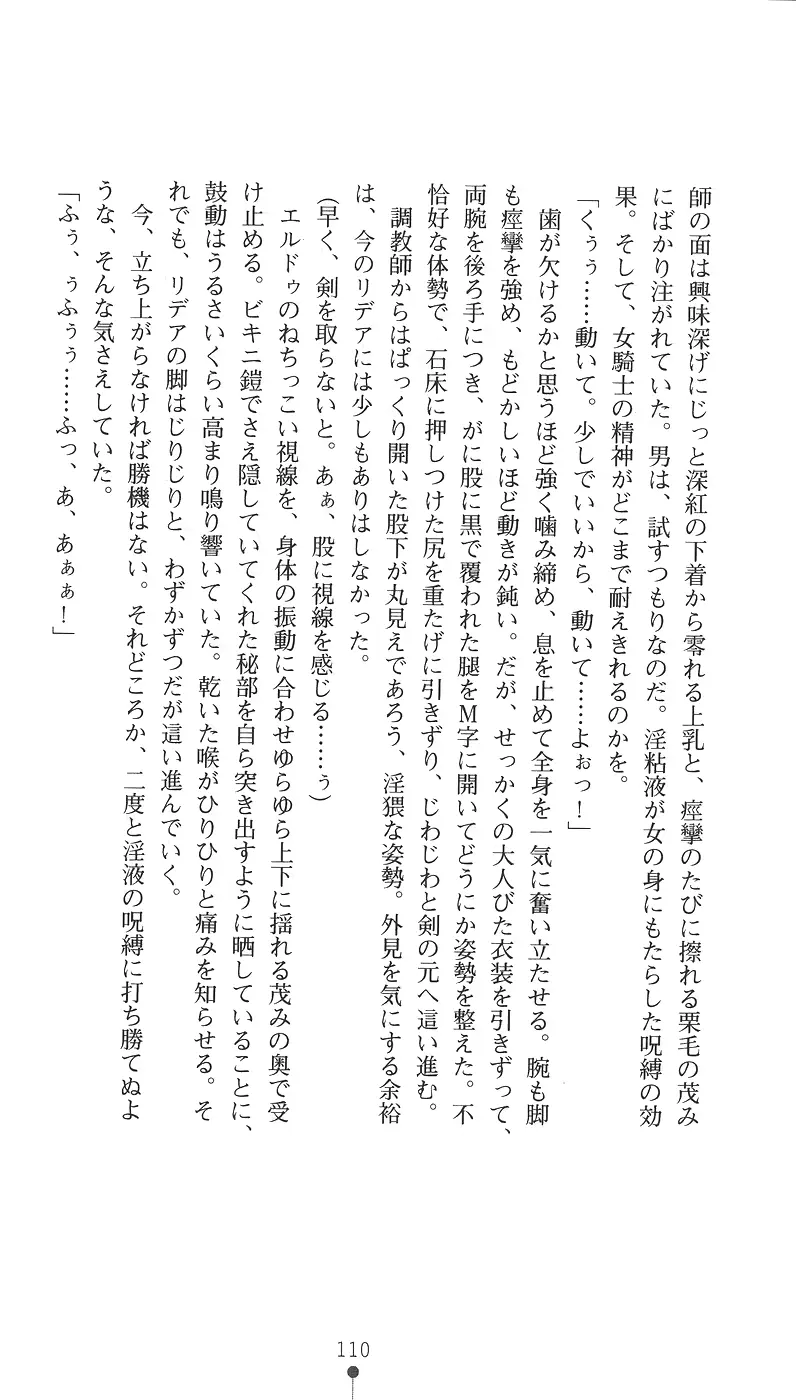 師の面は興味深げにじっと深紅の下着から零れる上乳と、痙攣のたびに擦れる栗毛の茂み
にばかり注がれていた。男は、試すつもりなのだ。淫粘液が女の身にもたらした呪縛の効
果。そして、女騎士の精神がどこまで耐えきれるのかを。
「くぅぅ……動いて。少しでいいから、動いて……よぉっ！」
歯が欠けるかと思うほど強く噛み締め、息を止めて全身を一気に奮い立たせる。腕も脚
も痙攣を強め、もどかしいほど動きが鈍い。だが、せっかくの大人びた衣装を引きずって、
両腕を後ろ手につき、がに股に黒で覆われた腿をＭ字に開いてどうにか姿勢を整えた。不
恰好な体勢で、石床に押しつけた尻を重たげに引きずり、じわじわと剣の元へ這い進む。
調教師からはぱっくり開いた股下が丸見えであろう、淫猥な姿勢。外見を気にする余裕
は、今のリデアには少しもありはしなかった。
（早く、剣を取らないと。あぁ、股に視線を感じる……ぅ）
エルドゥのねちっこい視線を、身体の振動に合わせゆらゆら上下に揺れる茂みの奥で受
け止める。ビキニ鎧でさえ隠していてくれた秘部を自ら突き出すように晒していることに、
鼓動はうるさいくらい高まり鳴り響いていた。乾いた喉がひりひりと痛みを知らせる。そ
れでも、リデアの脚はじりじりと、わずかずつだが這い進んでいく。
今、立ち上がらなければ勝機はない。それどころか、二度と淫液の呪縛に打ち勝てぬよ
うな、そんな気さえしていた。
「ふぅ、ぅふぅぅ……ふっ、あ、あぁぁ！」
110